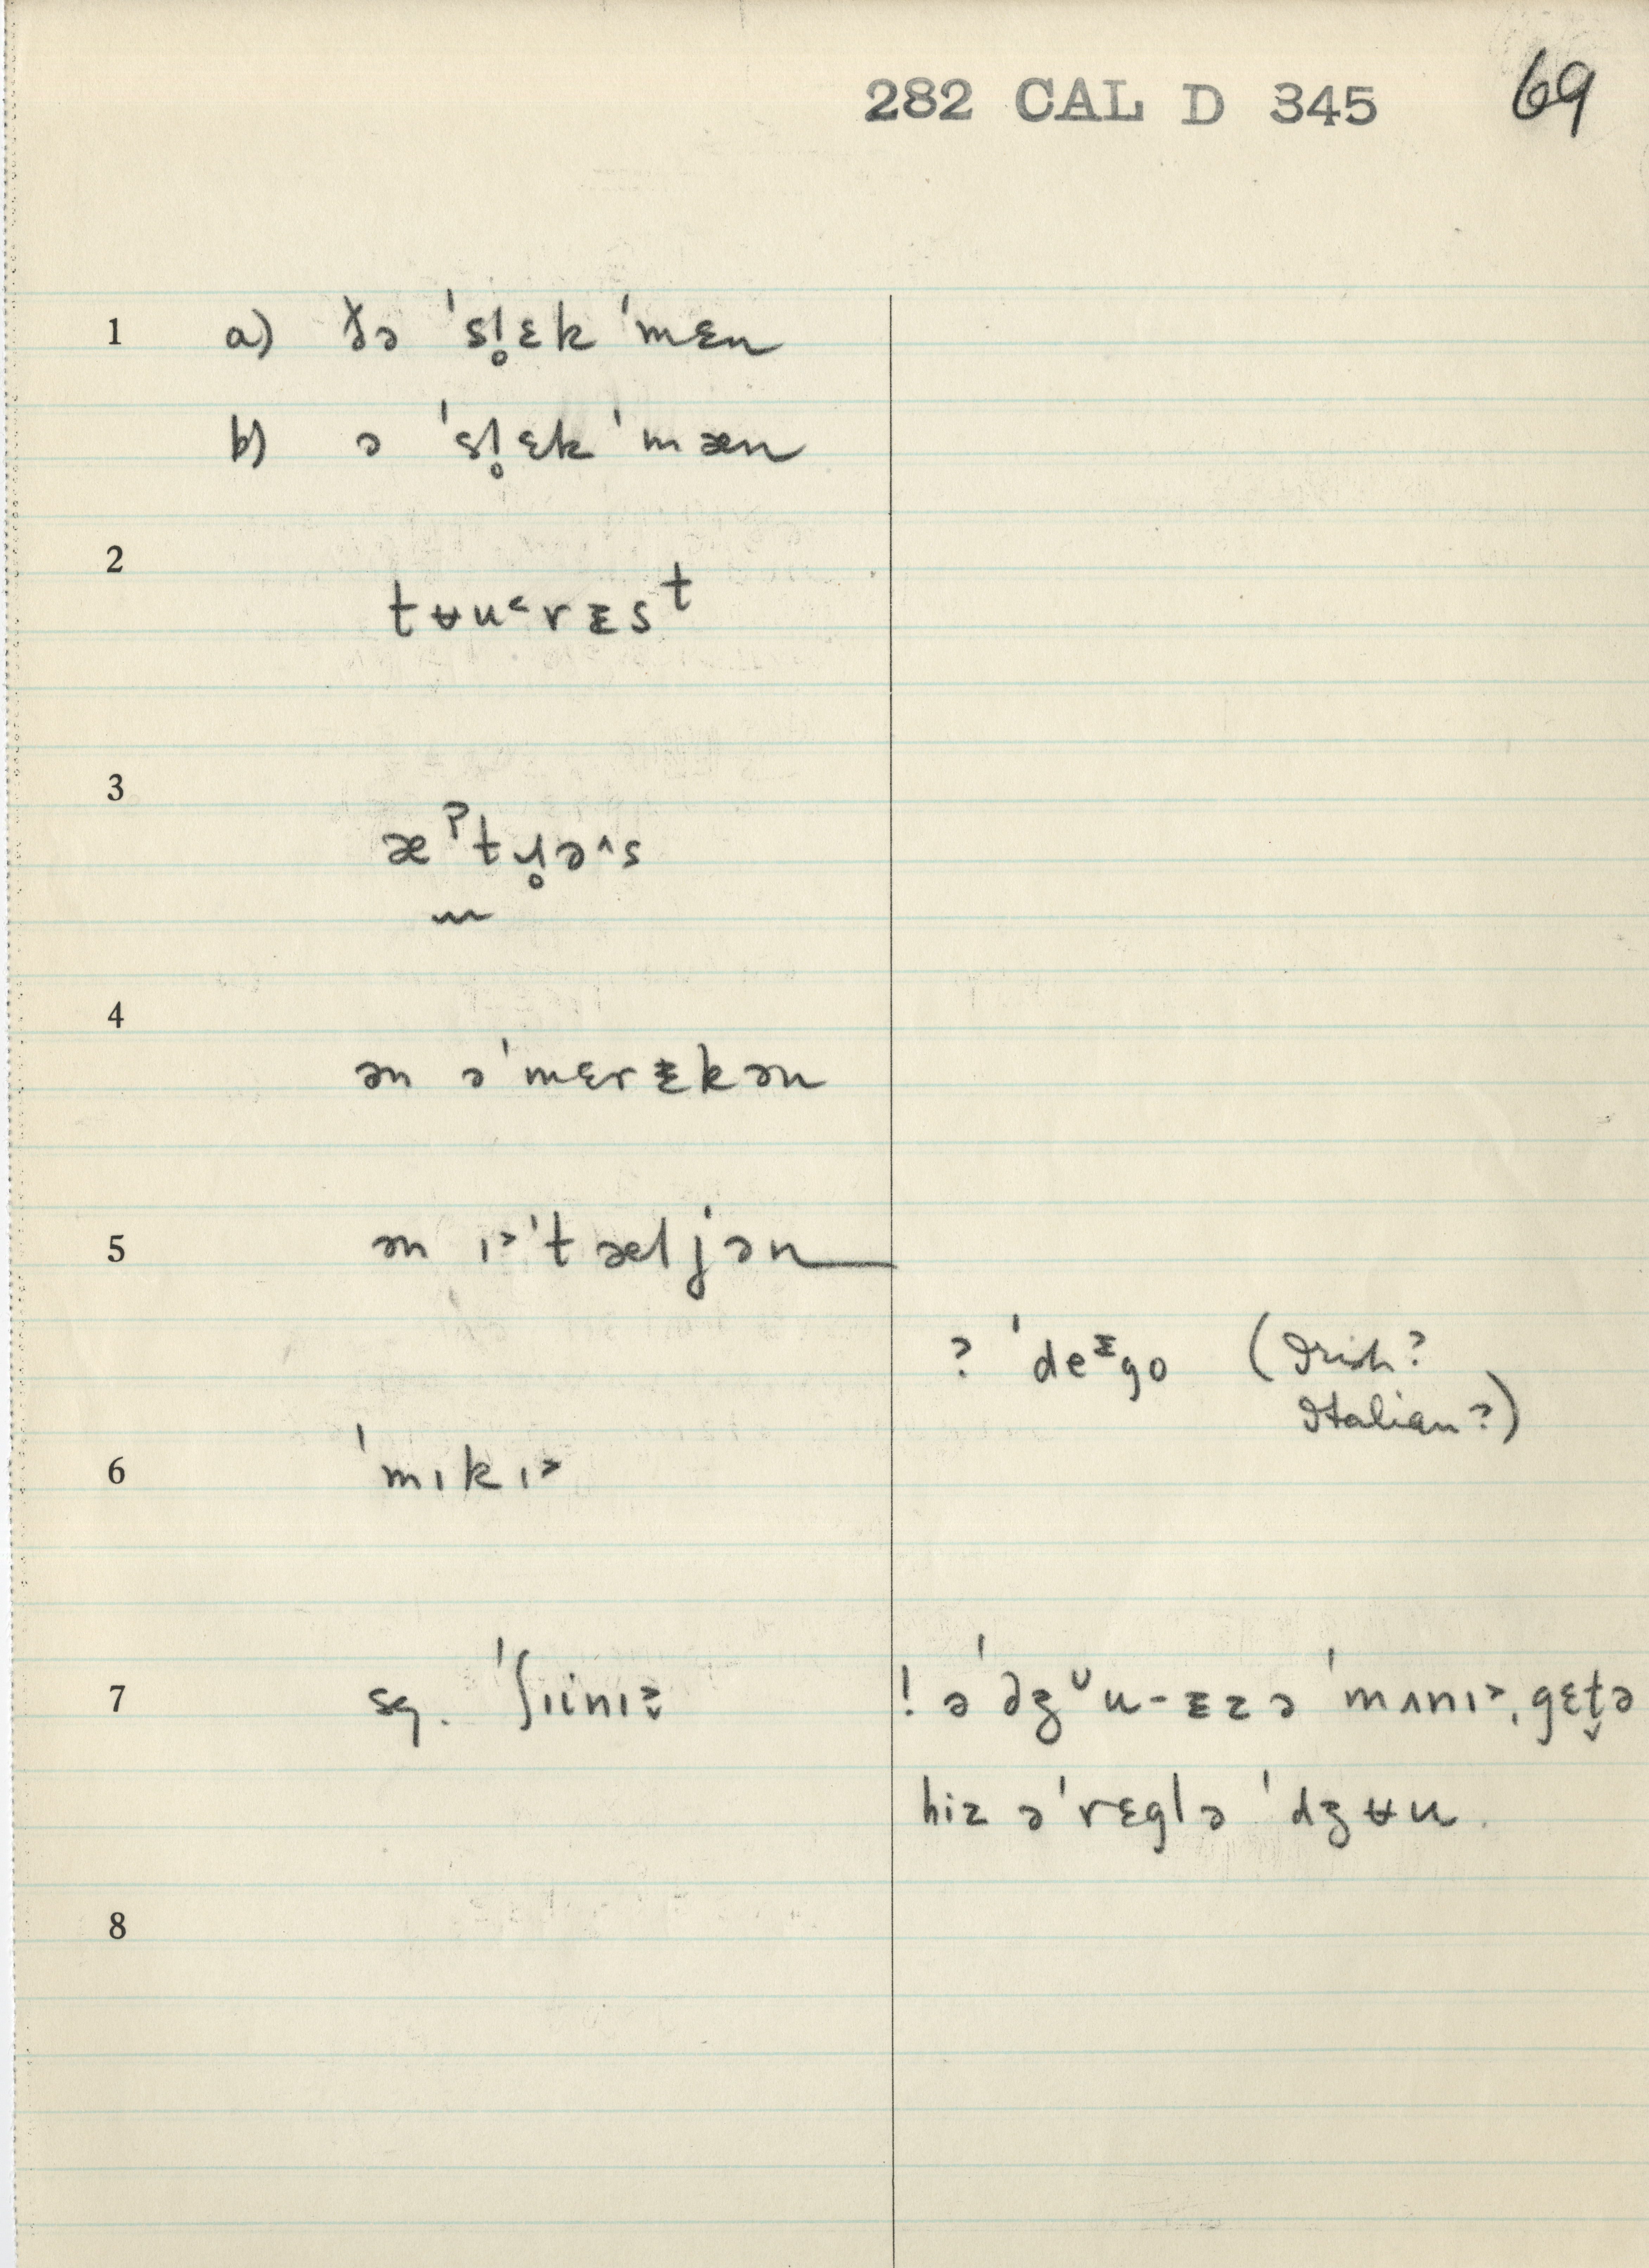 282 CAL D 345 69
1 a) ɣə ˈsl̥ɛk ˈmɛn
b) ə ˈsl̥ɛk ˈmæn
2
tʉu˂rᵻsᵗ
3
æˀtɹ̥ə^s
4
ən əˈmɛrᵻkən
5 ən ɪ˃ˈtæljən
? ˈdeᶦgo (Irish?
Italian?)
6 ˈmɪkɪ˃
7 sq. ˈʃɪinɪz ! əˈdʒᶸu-ᵻz ə ˈmʌnɪ˃ˌgɛt̬ə
hiz əˈrɛglə ˈdʒʉu.
8